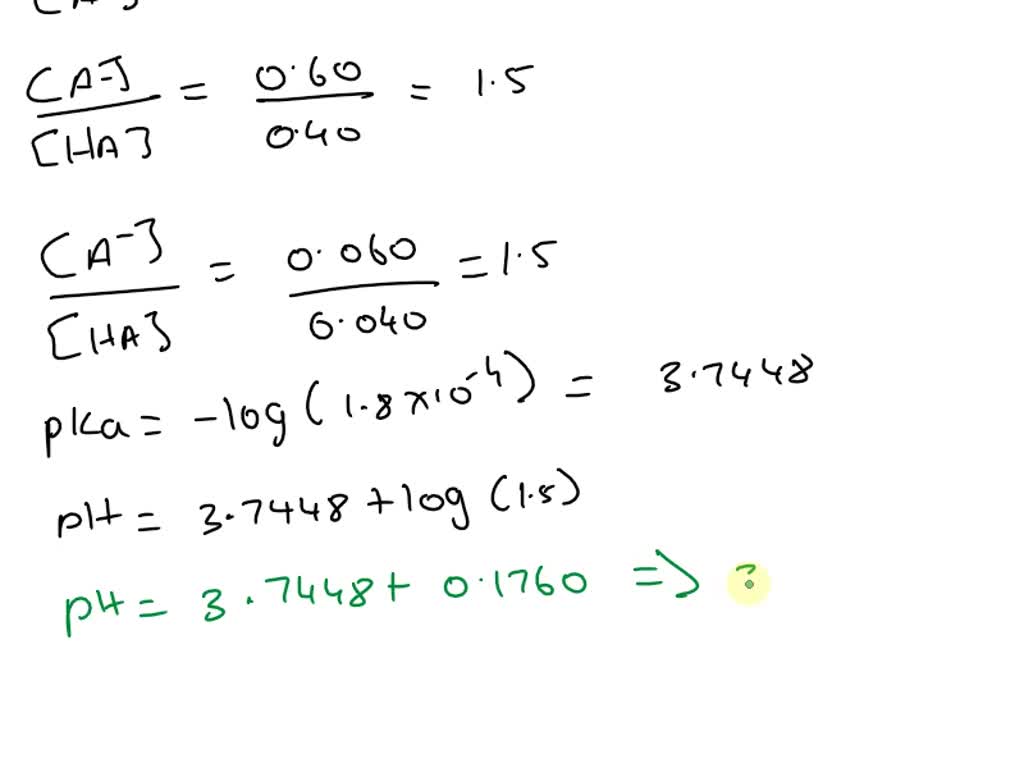 [A-] / [HA] = 0.60 / 0.40 = 1.5
[A-] / [HA] = 0.060 / 0.040 = 1.5
pKa = -log(1.8x10^-4) = 3.7448
pH = 3.7448 + log(1.5)
pH = 3.7448 + 0.1760 =>